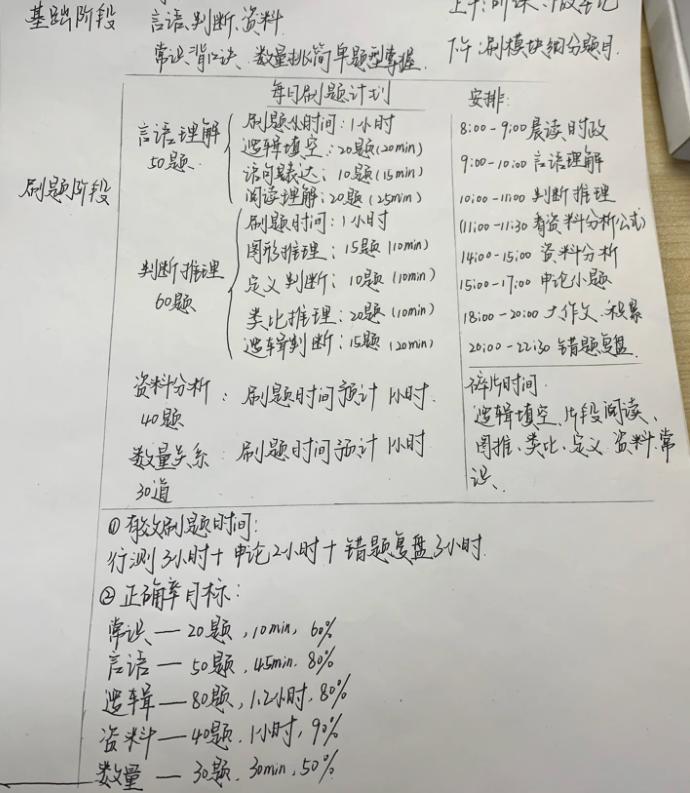 基础阶段
言语、判断、资料
常识背口诀、数量挑简单题型掌握.
下午:刷模块细分题目.
刷题阶段
每日刷题计划
言语理解
50题
刷题时间:1小时
逻辑填空:20题(20min)
语句表达:10题(15min)
阅读理解:20题(25min)
判断推理
60题
刷题时间:1小时
图形推理:15题(10min)
定义判断:10题(10min)
类比推理:20题(10min)
逻辑判断:15题(20min)
资料分析:刷题时间预计1小时.
40题
数量关系:刷题时间预计1小时
30道
安排:
8:00-9:00晨读时政
9:00-10:00 言语理解
10:00-11:00 判断推理
(11:00-11:30 看资料分析公式)
14:00-15:00 资料分析
15:00-17:00 申论小题
18:00-20:00 大作文、积累
20:00-22:30 错题复盘
碎片时间:
逻辑填空、片段阅读、
图推、类比、定义、资料、常
识、
①有效刷题时间:
行测3小时+申论2小时+错题复盘3小时.
②正确率目标:
常识—20题,10min,60%
言语—50题,45min,80%
逻辑—80题,1.2小时,80%
资料—40题,1小时,90%
数量—30题,30min,50%